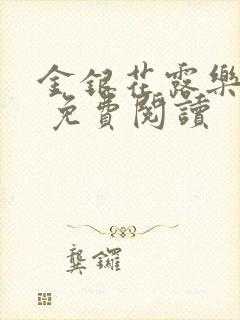 金銀花露樂
免費閱讀
龔鑼